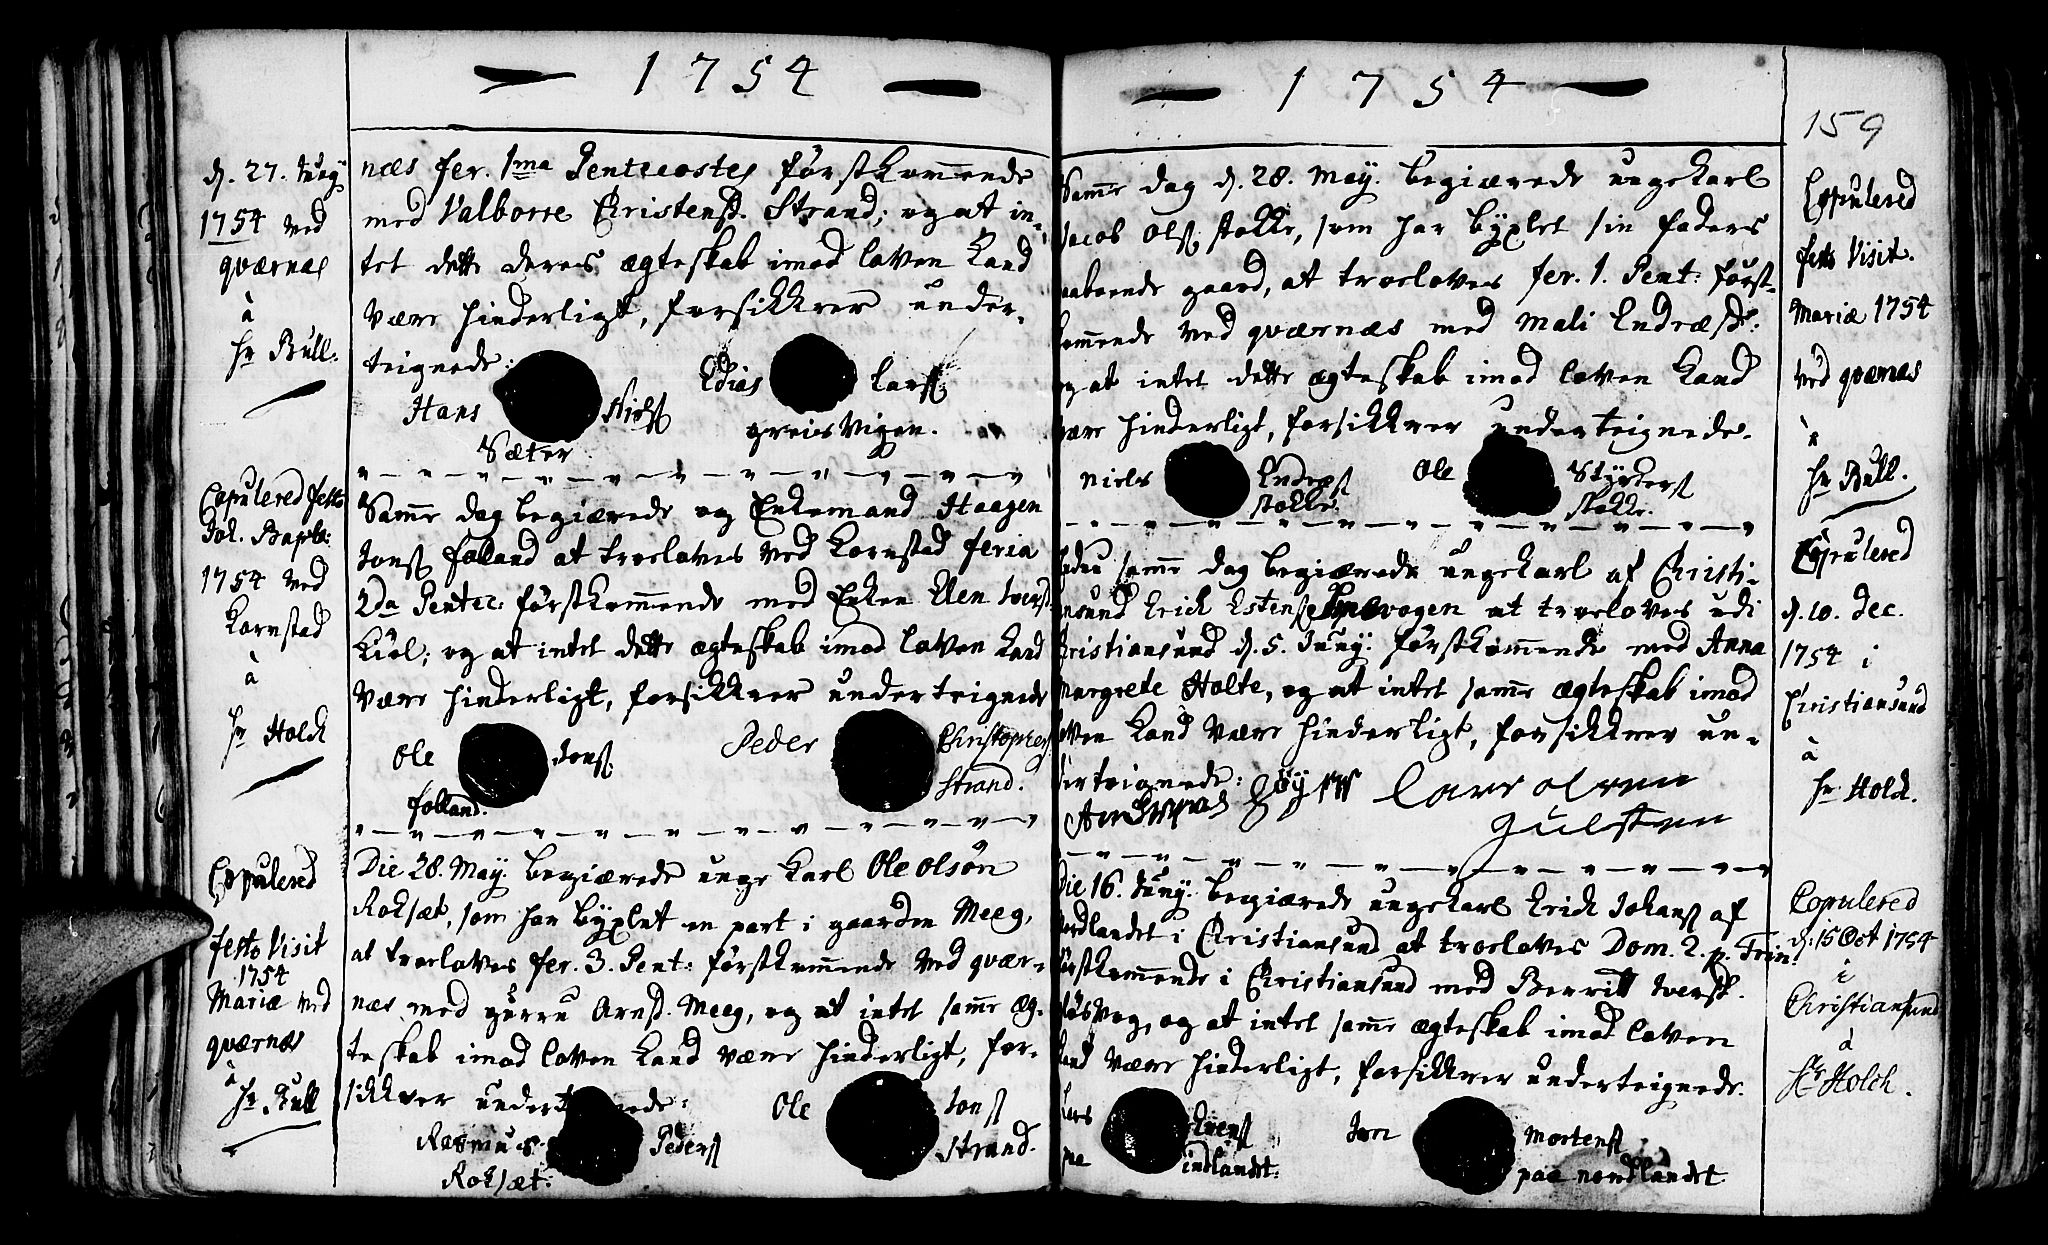 1754
d. 27. Juny
1754 ved
qværnæs
à
Hr Bull.
næs fer. 1ma Pentecostes førstkom̅ende
med Valborre Christensd. Strand; og at in-
tet dette deres ægteskab imod loven kand
være hinderligt, forsikkrer under-
teignede:
Hans Nielsß
Sæter
Edias Larsß
greis Vigen.
Copulered festo
Joh. Bapt:
1754 ved
Kornstad
à
Hr Holck
Sam̅e dag begiærede og Enkemand Haagen
Jonsß folland at troeloves ved Kornstad feria
2da Pentec: førstkom̅ende med Enken Elen Iversd
Kiöl; og at intet dette ægteskab imod loven kand
være hinderligt, forsikkrer underteignede
Ole Jonsß
folland.
Peder Christophersß
Strand.
Copulered
festo Visit
1754
Mariæ ved
qværnæs
à
Hr Bull
Die 28. May. begiærede unge karl Ole olsøn
Roksæt, som har byxlet en part i gaarden Meeg,
at troeloves fer. 3. Pent: førstkom̅ende ved qvær-
næs med gurru Arnsd. Meeg, og at intet sam̅e æg-
teskab imod loven kand være hinderligt, for-
sikkrer underteignede:
Rasmus Pedersß
Roksæt.
Ole Jonsß
Strand.
1754
159
Sam̅e dag d. 28. May. begiærede ungekarl
Jacob Olsß stokke, som har byxlet sin faders
paaboende gaard, at troeloves fer. 1. Pent: først-
kom̅ende ved qværnæs med Mali Endræsd:
og at intet dette ægteskab imod loven kand
være hinderligt, forsikkrer underteignede.
Niels Endresß
stokke.
Ole Styrckersß
stokke.
Copulered
festo Visit.
Mariæ 1754
ved qværnæs
à
Hr Bull.
sam̅e dag begiærede ungekarl af Christi-
ansund Erich Estensß at troeloves udi
Christiansund d. 5. Juny. førstkom̅ende med Anna
Margrete Holte, og at intet sam̅e ægteskab imod
loven kand være hinderligt, forsikkrer un-
derteignede:
Lars olsen
Gulsten
Copulered
d. 10. Dec.
1754 i
Christiansund
à
Hr Holck.
Die 16. Juny. begiærede ungekarl Erich Johansß af
Nordlandet i Christiansund at troeloves Dom. 2. p. Trin.
førstkom̅ende i Christiansund med Berritt Iversd.
og at intet sam̅e ægteskab imod loven
kand være hinderligt, forsikkrer underteignede.
Lars Evensß
paa indlandet.
Iver Mortensß
paa nordlandet.
Copulered
d. 15 Oct 1754
i
Christiansund
à
Hr Holck.